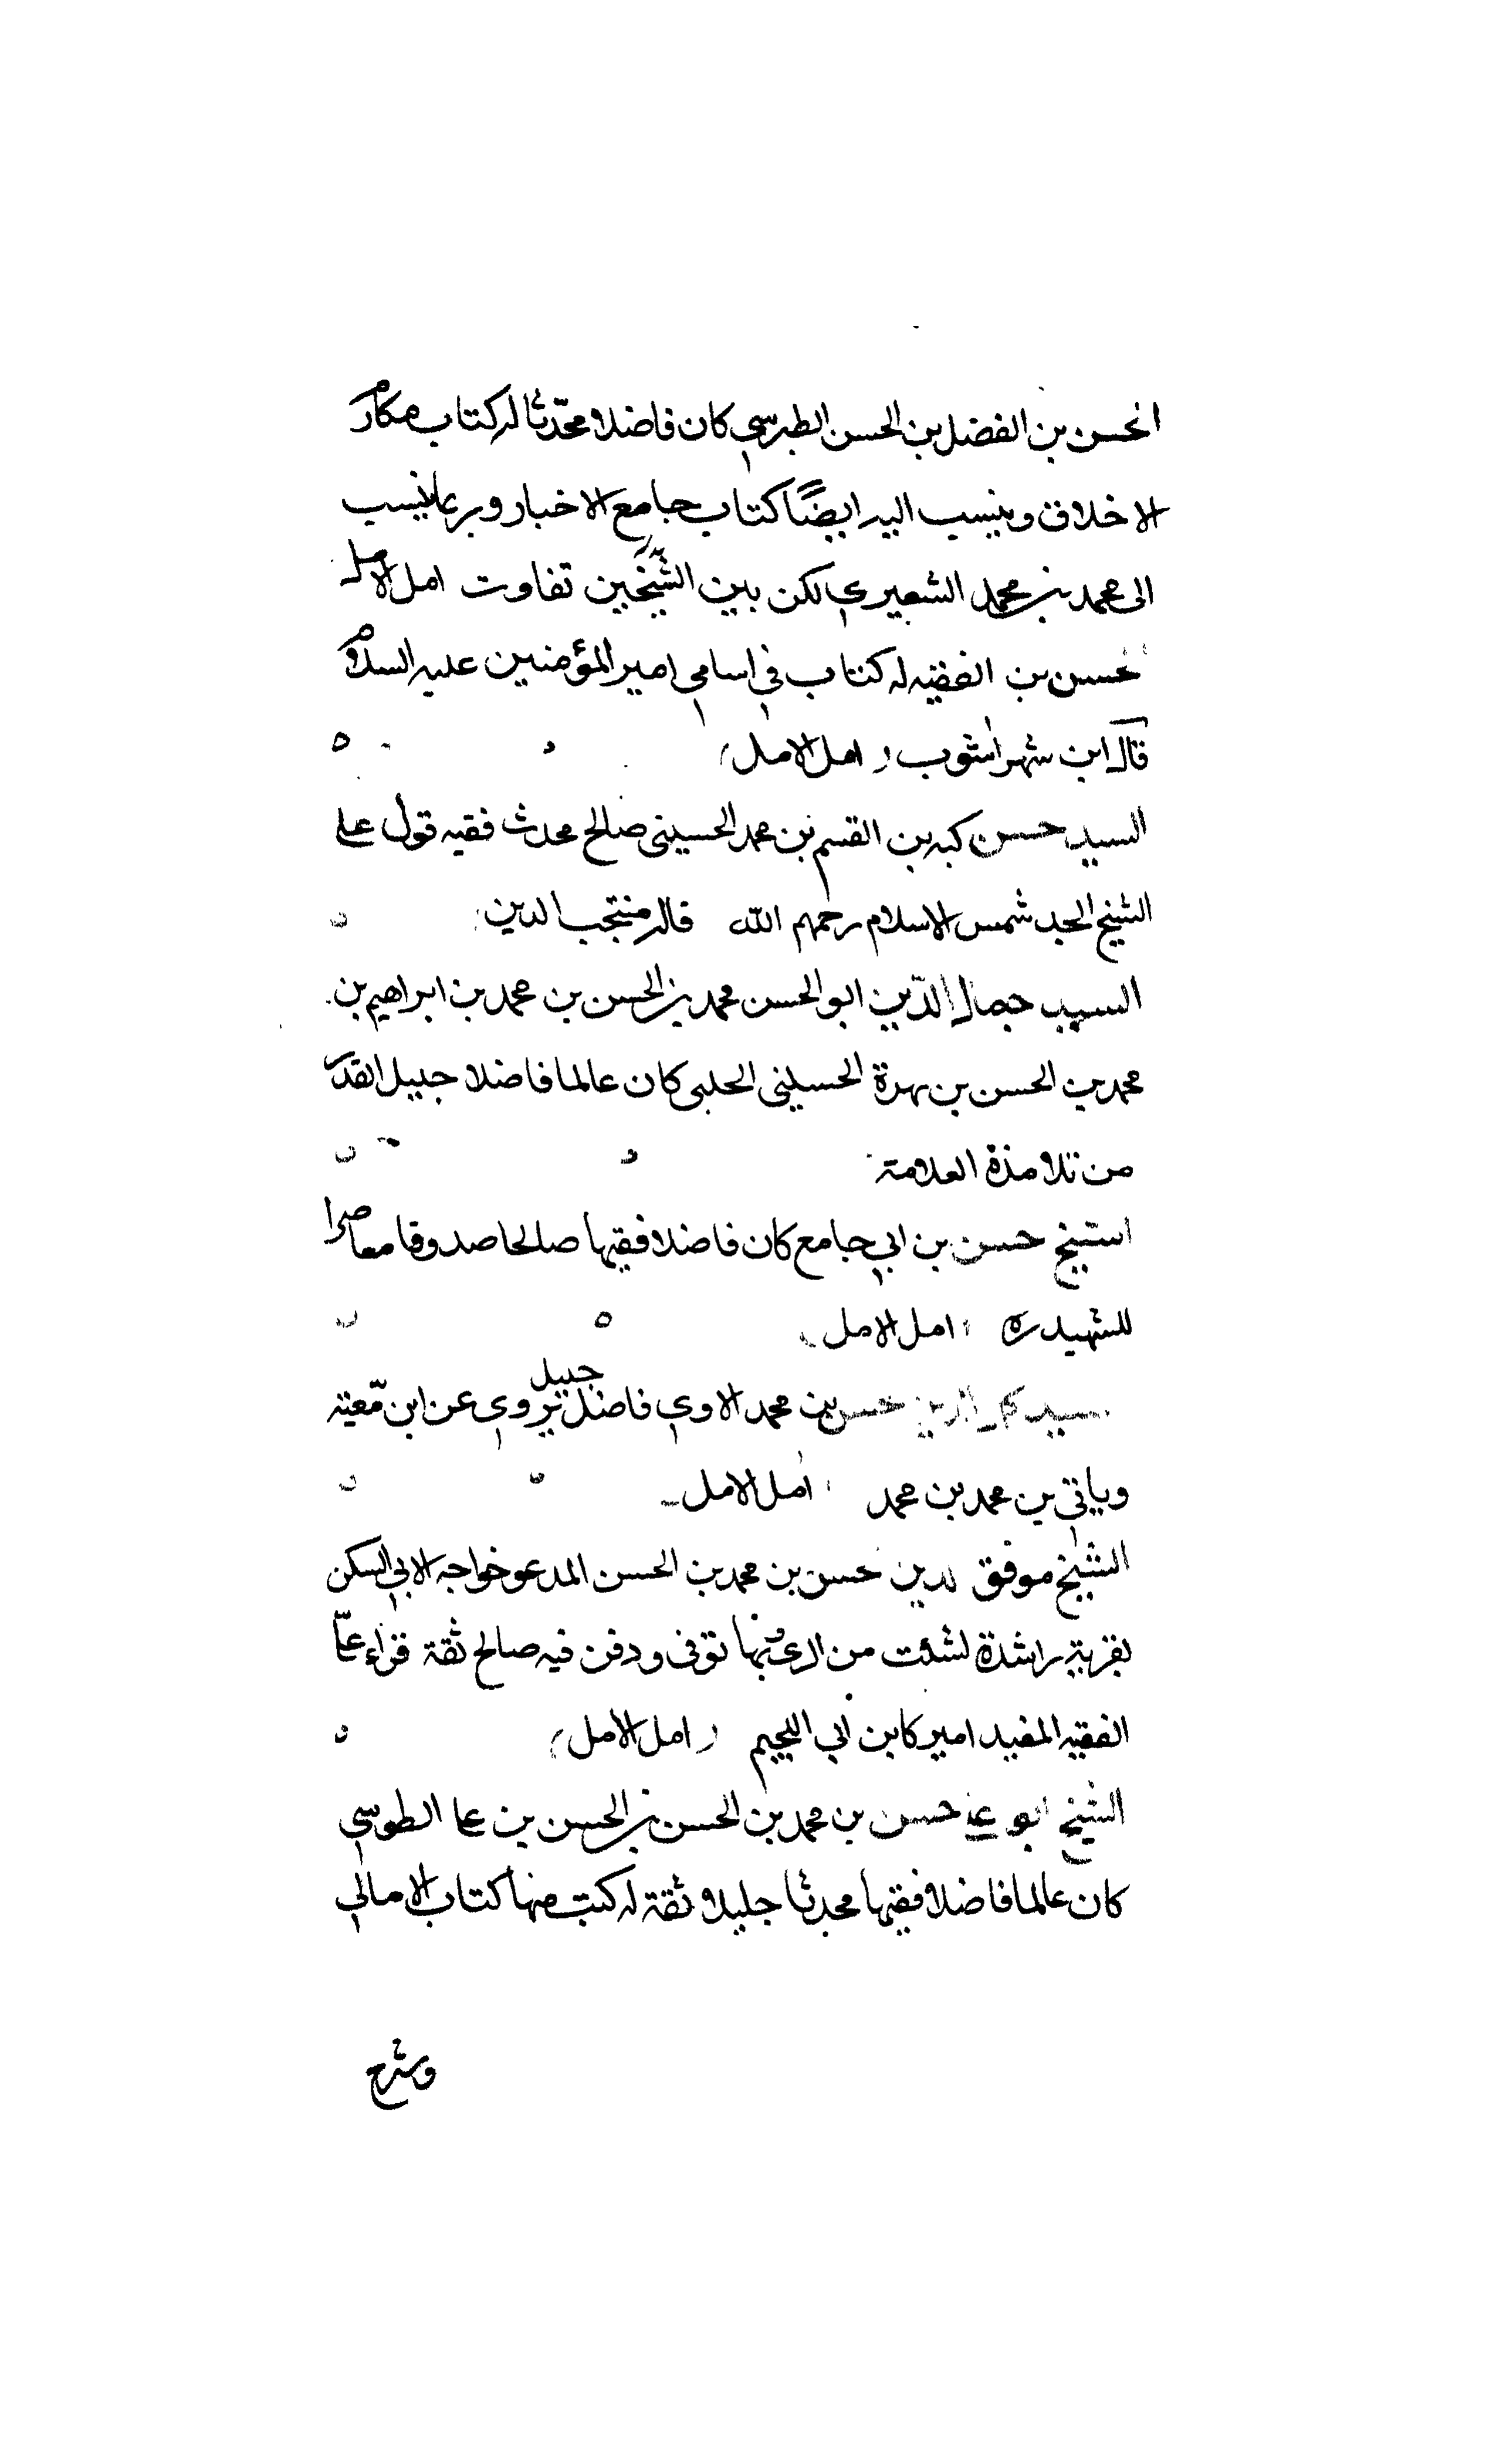 الحسن بن الفضل بن الحسن الطبرسي كان فاضلا محدّثا له كتاب مكارم
الاخلاق وينسب اليه ايضًا كتاب جامع الاخبار وربما ينسب
الى محمد بن محمد الشعيري لكن بين الشيخين تفاوت امل الامل
حسن بن الفقيه له كتاب في اسامي امير المؤمنين عليه السلام
قاله ابن شهراشوب ( امل الامل )
السيد حسن كبه بن القسم بن محمد الحسيني صالح محدث فقيه قول على
الشيخ الجد شمس الاسلام رحمهم الله قاله منتجب الدين
السيد جمال الدّين ابو الحسن محمد بن الحسن بن محمد بن ابراهيم بن
محمد بن الحسن بن بهرة الحسيني الحلبي كان عالما فاضلا جليل القدر
من تلامذة العلامة
الشيخ حسن بن ابي جامع كان فاضلا فقيها صالحا صدوقا معاصرا
للشهيد ره ( امل الامل )
سيد كمال الدين حسن بن محمد الاوي فاضل جليل يروي عن ابن معّية
وياتي بن محمد بن محمد ( امل الامل
الشيخ موفق لدين حسن بن محمد بن الحسن المدعو خواجه الابي السكن
بقرية راشدة لشئت من الري وبها توفى ودفن فيه صالح ثقة قراء علىّ
الفقيه المفيد اميركا بن ابي اللجيم ( امل الامل )
الشيخ ابو على حسن بن محمد بن الحسن بن الحسن بن على الطوسي
كان عالما فاضلا فقيها محدثا جليلا ثقة له كتب منها كتاب الامالي
وشرح